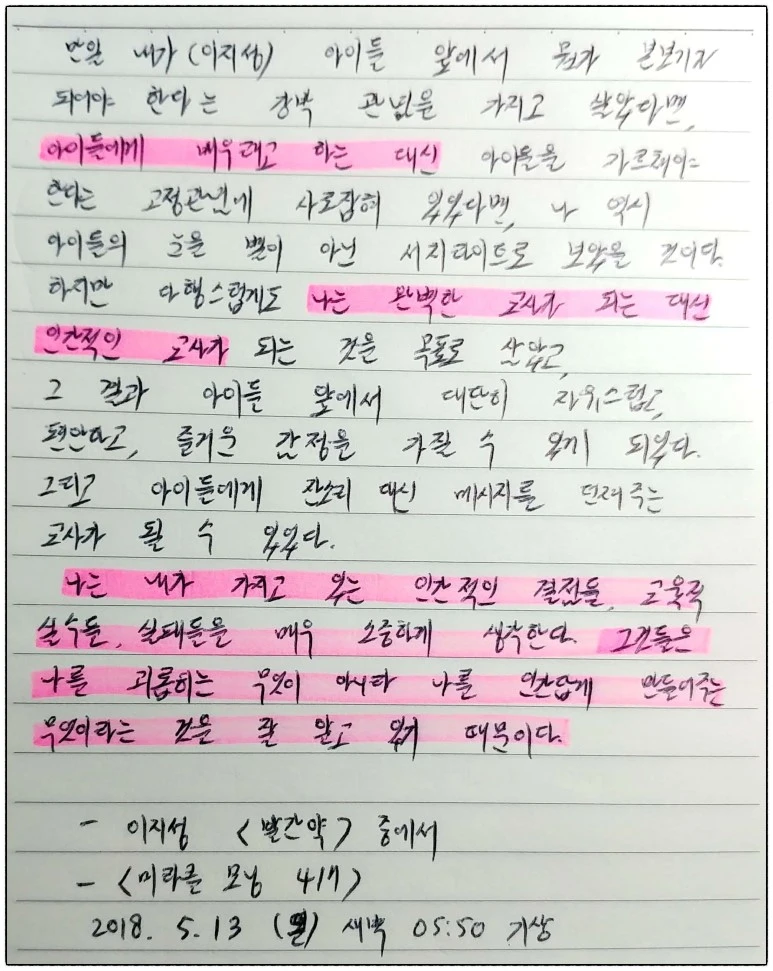 만일 내가 (이지성) 아이들 앞에서 뭔가 본보기가
되어야 한다는 강박 관념을 가지고 살았다면,
아이들에게 배우려고 하는 대신 아이들을 가르쳐야
한다는 고정관념에 사로잡혀 있었다면, 나 역시
아이들의 눈을 별이 아닌 서치라이트로 보았을 것이다.
하지만 다행스럽게도 나는 완벽한 교사가 되는 대신
인간적인 교사가 되는 것을 목표로 살았고,
그 결과 아이들 앞에서 대단히 자유스럽고,
편안하고, 즐거운 감정을 가질 수 있게 되었다.
그리고 아이들에게 잔소리 대신 메시지를 던져주는
교사가 될 수 있었다.
나는 내가 가지고 있는 인간적인 결점들, 교육적
실수들, 실패들을 매우 소중하게 생각한다. 그것들은
나를 괴롭히는 무엇이 아니라 나를 인간답게 만들어주는
무엇이라는 것을 잘 알고 있기 때문이다.
- 이지성 <빨간약> 중에서
- <미라클 모닝 417>
2018. 5. 13 (일) 새벽 05:50 기상